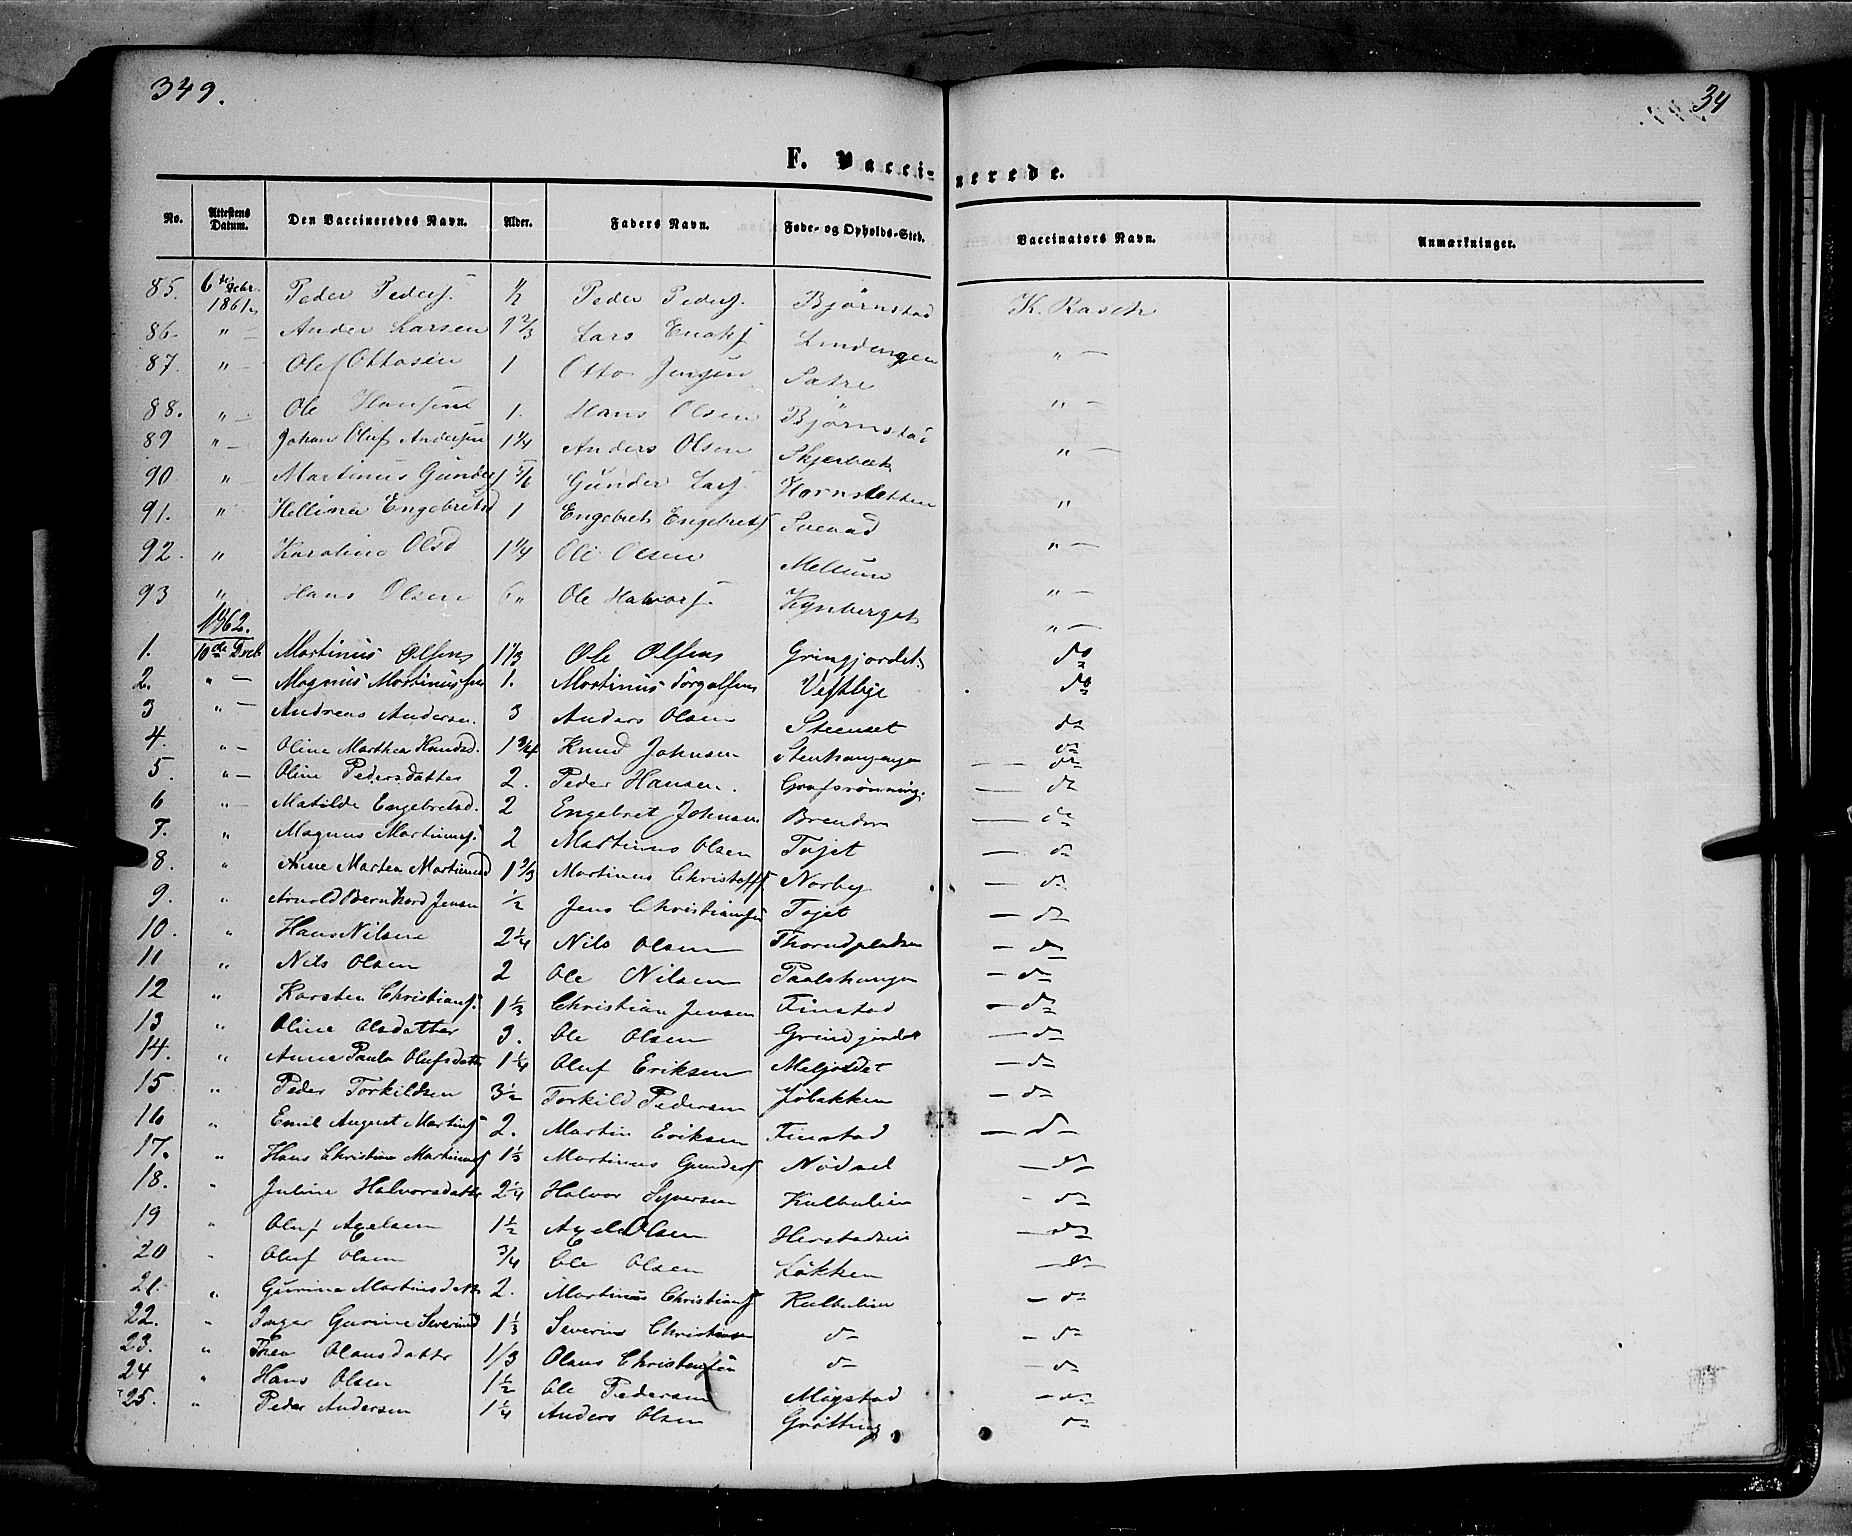 349.
34
F. Vaccinerede.
No. Attestens Datum. Den Vaccineredes Navn. Alder. Faders Navn. Føde- og Opholds-Sted. Vaccinators Navn. Anmærkninger.
85. 6de Febr. 1861 Peder Peders. ½ Peder Peders. Bjørnstad K. Rasch
86. " — Ander Larsen 1 2/3 Lars " —
87. " — Olef Ottosen 1 Otto Jensen Sætre " —
88. " — Ole Hansen 1. Hans Olsen Bjørnstad " —
89 " — Johan Oluf Andersen 1¼ Anders Olsen Skjerbæk "
90 " — Martinus Gunders 5/6 Gunder Lars. Hornsletten "
91. " Hellina Engebretsd 1 Engebret Engebrets Sveaad " —
92. " Karoline Olsd 1¼ Ole Olsen Mellum " —
93 " Hans Olsen 6" Ole Halvors. Kynberget " —
1862.
1. 10de Decb Martinus Olsen 1⅓ Ole Olsen Grinjordet do
2. " — Magnus Martinussen 1. Martinus Torgalsen Vestbye do
3 " — Andreas Andersen. 3 Anders Olsen Steenset do
4. " — Oline Marthea Knudsd. 1¾ Knud Johnsen Stenhaugen do
5. " — Oline Pedersdatter 2. Peder Hansen. Grafsrønning. — do
6 " — Matilde Engebretsd. 2 Engebret Johnsen Brenden — do
7. " Magnus Martinuss. 2 Martinus Olsen Tøjet — do
8. " Anne Marten Martinusd 1 2/3 Martinus Christoffs Norby — do
9. " Arnold Bernhard Jensen ½ Jens Christiansen Tøjet — do
10. " Hans Nilsen 2¼ Nils Olsen Thorudpladsen — do
11 " Nils Olsen 2 Ole Nilsen Paalshaugen — do
12 " Karsten Christians. 1⅓ Christian Jensen Finstad — do
13 " Oline Olsdatter 3. Ole Olsen Grindjordet — do
14. " Anne Paula Olufsdattr 1¼ Oluf Eriksen Meljordet — do
15 " Peder Torkildsen 3½ Torkild Pedersen Jøbakken — do
16 " Emil August Martins 2. Martin Eriksen Finstad — do
17. " Hans Christian Martinuss 1⅓ Martinus Gunders Nødset — do
18. " Juline Halvorsdattr 2¼ Halvor Syversen Kulbulien — do
19 " Oluf Axelsen 1½ Axel Olsen Herstadseie — do
20 " Oluf Olsen ¾ Ole Olsen Løkken — do
21. " Gurine Martinusdattr 2. Martinus Christians Kulbulien — do
22. " Inger Gurine Severind 1⅓ Severin Christiansen do — do
23. " Thea Olausdattr 1/3 Olaus Christensen do — do
24 " Hans Olsen 1½ Ole Pedersen Møystad — do
25. " Peder Andersen 1¼ Anders Olsen Grøtting do